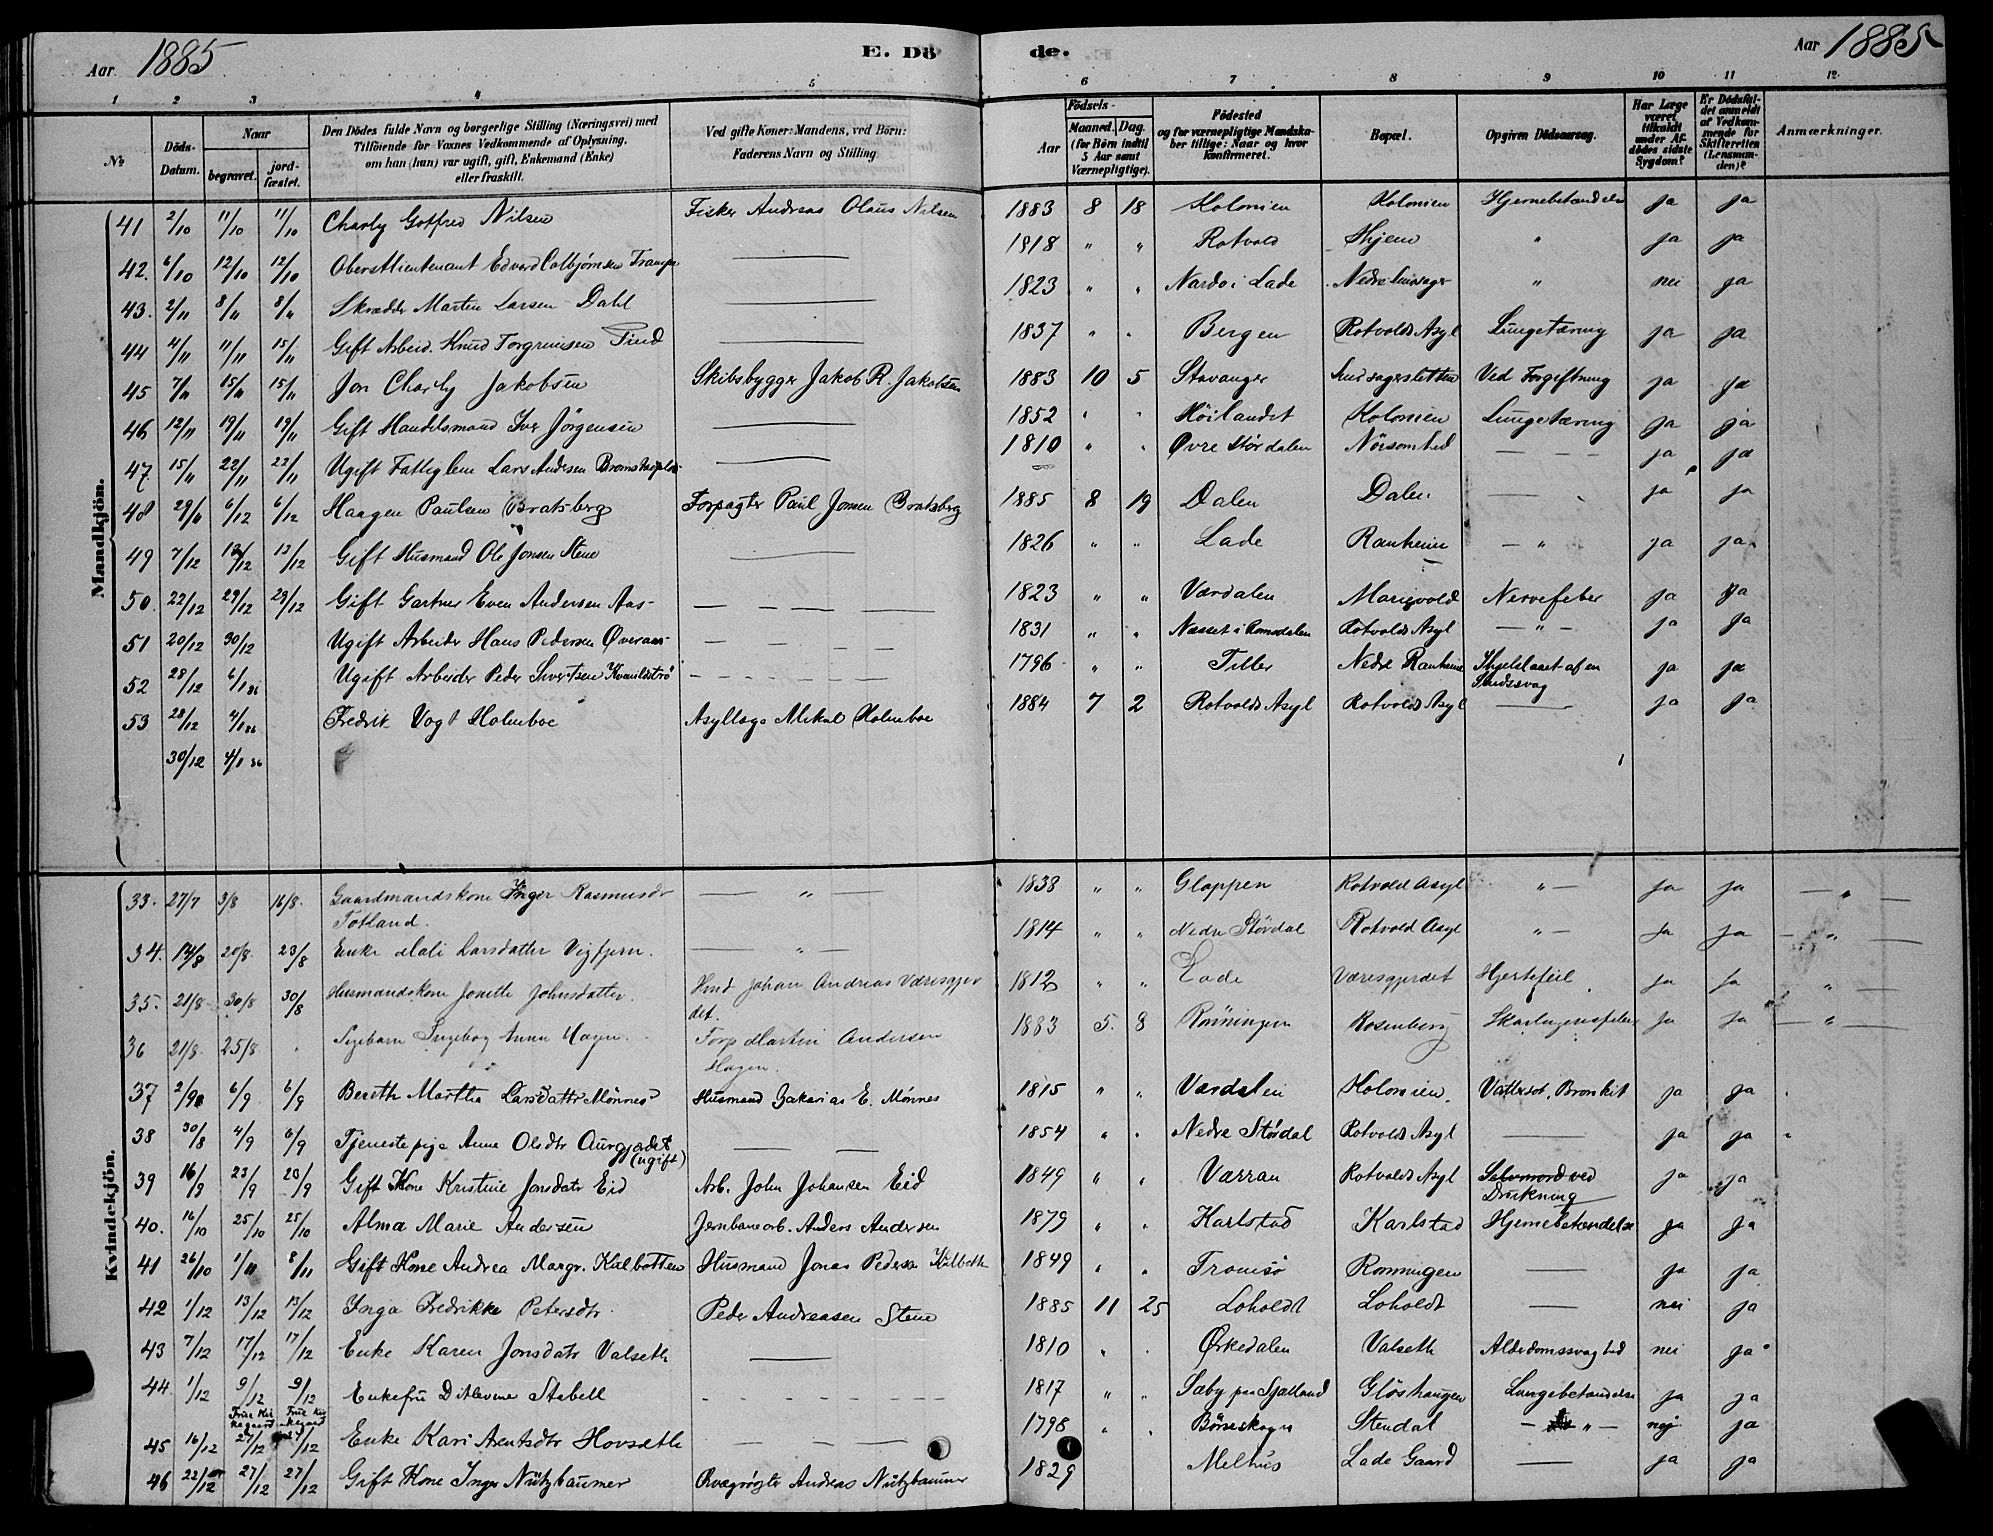 Aar 1885
E. Dö
de.
Aar 1885
1 2 3 4 5 6 7 8 9 10 11 12
No
Döds-Datum.
Naar
begravet.
jord-fæstet.
Den Dödes fulde Navn og borgerlige Stilling (Næringsvei) med
Tilföiende for Voxnes Vedkommende af Oplysning,
om han (hun) var ugift, gift, Enkemand (Enke)
eller fraskilt.
Ved gifte Koner: Mandens, ved Börn:
Faderens Navn og Stilling
Födsels-
Aar
Maaned. Dag.
(for Börn indtil
5 Aar samt
Værnepligtige).
Födested
og for værnepligtige Mandska-
ber tillige: Naar og hvor
konfirmeret.
Bopæl.
Opgiven Dödsaarsag.
Har Læge
været
tilkaldt
under Af-
dödes sidste
Sygdom?
Er Dödsfal-
det anmeldt
af Vedkom-
mende for
Skifteretten
(Lensman-
den)?
Anmærkninger.
Mandkjön.
41 2/10 11/10 11/10 Charly Gotfred Nilsen Fisker Andreas Olaus Nilsen 1883 8 18 Kolonien Kolonien Hjernebetændelse ja ja
42. 6/10 12/10 12/10 Oberstlieutenant Edvard Colbjørnsen Trampe — 1818 " " Rotvold Skjem " ja ja
43. 2/11 8/11 8/11 Skrædder Marten Larsen Dahl — 1823 " " Nardo i Lade Nedre " nei ja
44 4/11 11/11 15/11 Gift Arbeid. Knud Torgrimsen Tind — 1837 " " Bergen Rotvolds Asyl Lungetæring ja ja
45 7/11 15/11 15/11 Jon Charly Jakobsen Skibsbygger Jakob R. Jakobsen 1883 10 5 Stavanger Ved Forgiftning ja ja
46 12/11 19/11 19/11 Gift Handelsmand Iver Jörgensen — 1852 " " Höilandet Kolonien Lungetæring ja ja
47. 15/11 22/11 22/11 Ugift Fattiglem Lars Andersen — 1810 " " Øvre Stördalen Nörsomhed — — — ja ja
48 29/11 6/12 6/12 Haagen Paulsen Bratsberg Forpagter Paul Jonsen Bratsberg 1885 8 19 Dalen Dalen — ja ja
49 7/12 12/12 12/12 Gift Husmand Ole Jonsen Stene — 1826 " " Lade Ranheim — " — ja ja
50. 22/12 29/12 29/12 Gift Gartner Even Andersen Aas — — — — 1823 " " Værdalen Marievold Nervefeber ja ja
51 20/12 30/12 Ugift Arbeider Hans Pedersen Øveraas — — — — 1831 " " Næsset i Romsdalen Rotvolds Asyl — " — ja ja
52 28/12 6/1 86 Ugift Arbeider Peder Sivertsen Kvenildstrø — — — — 1796 " " Tiller Nedre Ranheim Ihjelslaaet af en
Sindssvag ja ja
53 28/12 4/1 86 Fredrik Vogt Holmboe Asyllæge Mikal Holmboe 1884 7 2 Rotvolds Asyl Rotvolds Asyl — ja ja
30/12 4/1 86
Kvindekjön.
33. 27/7 3/8 16/8. Gaardmandskone Inger Rasmusdr
Totland. — " — 1838 " " Gloppen Rotvold Asyl " — ja ja — " —
34. 14/8 20/8 23/8 Enke Mali Larsdatter — " — 1814 " " Nedre Stördal Rotvold Asyl " — ja ja — " —
35. 21/8 30/8 30/8 Husmandskone Jonette Johnsdatter. Hmd Johan Andreas Væresgjer
det. 1812 " " Lade Væresgjerdet Hjertefeil ja ja " —
36 21/8 25/8 " Ingeborg Anna Hagen. Forp Martin Andersen
Hagen. 1883 5. 8 Rönningen Rosenberg ja ja — " —
37 2/9 6/9 6/9 Bereth Martha Larsdatter Mönnes Husmand Zakarias E. Mönnes 1815 " " Værdalen Kolonien. Vattersot, Bronkit ja ja
38 30/8 4/9 6/9 Tjenestepige Anne Olsdtr
(ugift) — — 1854 " " Nedre Stördal Rotvolds Asyl — ja ja
39 16/9 23/9 20/9 Gift Kone Kristine Jonsdatr Eid Arb. John Johansen Eid 1849 " " Værran Rotvolds Asyl Selvmord ved
Drukning ja ja
40. 16/10 25/10 25/10 Alma Marie Andersen Jernbanearb. Anders Andersen 1879 " " Karlstad Karlstad Hjernebetændelse ja ja
41 26/10 1/11 8/11 Gift Kone Andrea Margr. Kalbotten Husmand Jonas Peders. 1849 " " Tromsø Rønningen — ja ja
42 1/12 13/12 13/12 Inga Fredrikke Petersdtr. Peder Andreasen Stene 1885 11 25 Loholdt Loholdt — nei ja
43 7/12 17/12 17/12 Enke Karen Jonsdatr Valseth — 1810 " " Ørkedalen Valseth Alderdomssvaghed nei ja
44. 1/12 9/12 9/12 Enkefru Ditlevine Stabell — — — — 1817 " " Sæby paa Sjælland Glöshaugen Lungebetændelse ja ja
Frue Kir
kegaard Frue Kir
kegaard
45 16/12 27/12 27/12 Enke Kari Arentsdtr Hovsæth — — — — 1798 " " Børseskogn Stendal — " — nej ja
46 22/12 27/12 27/12 Gift Kone Inger Nützbaumer Kvægrögter Andreas Nützbaumer 1829 Melhus Lade Gaard — ja ja